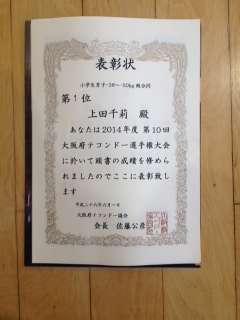 表彰状
小学生男子-30〜-50kg級合同
第1位
上田千莉 殿
あなたは2014年度 第10回
大阪府テコンドー選手権大会
に於いて頭書の成績を修めら
れましたのでここに表彰致し
ます
平成二十六年六月一日
大阪府テコンドー協会
会長 佐藤公彦